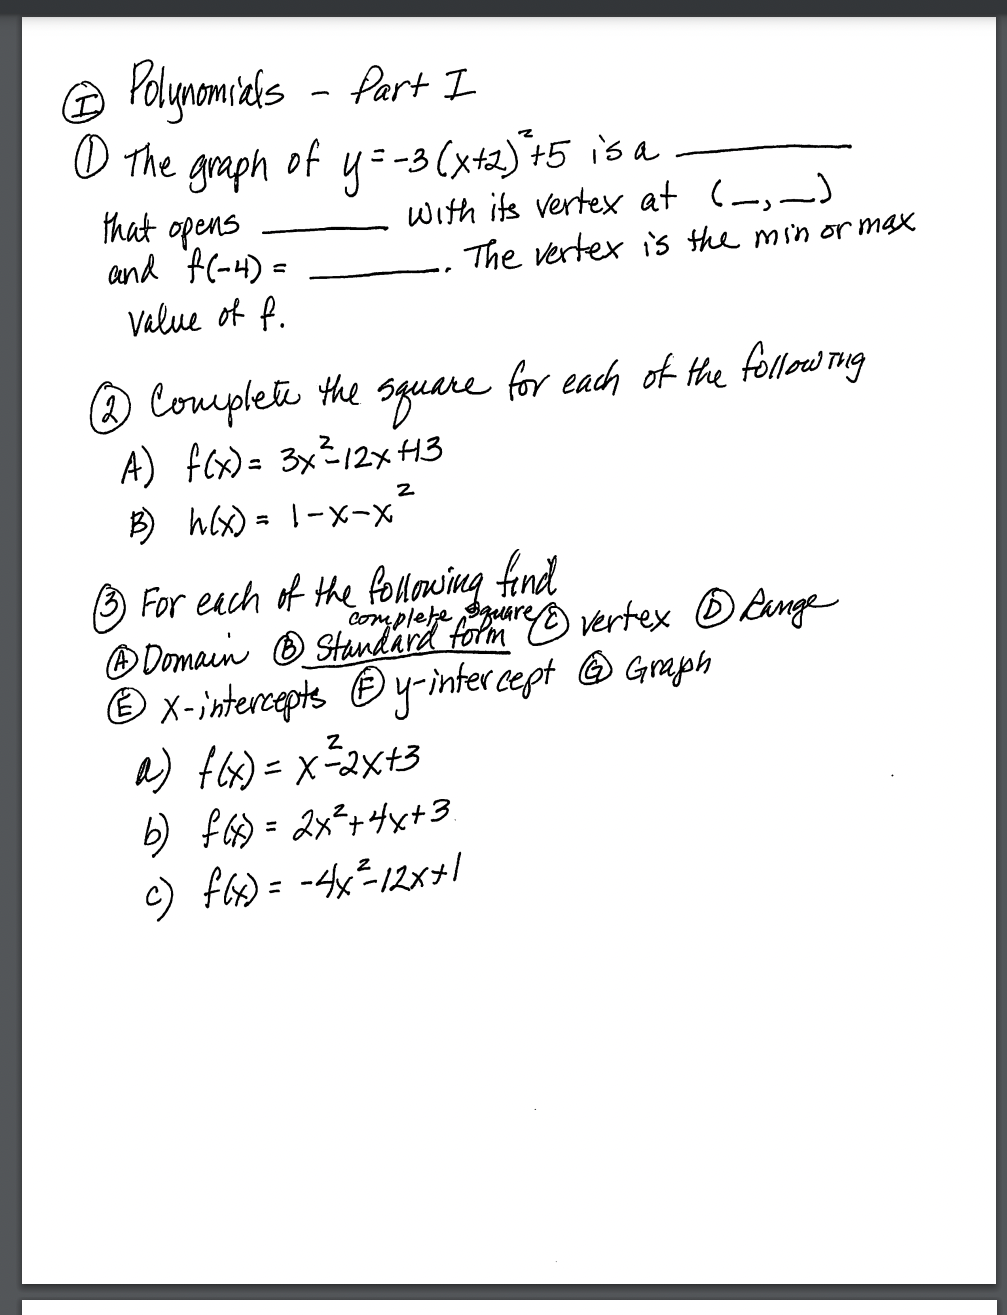 Ⓘ Polynomials - Part I
① The graph of y = -3(x+2)²+5 is a ______
that opens ______ with its vertex at (_,_)
and f(-4) = ______. The vertex is the min or max
value of f.
② Complete the square for each of the following
A) f(x) = 3x²-12x+13
B) h(x) = 1-x-x²
③ For each of the following find
complete square
Ⓐ Domain Ⓑ Standard form Ⓒ vertex Ⓓ Range
Ⓔ x-intercepts Ⓕ y-intercept Ⓖ Graph
a) f(x) = x²-2x+3
b) f(x) = 2x²+4x+3
c) f(x) = -4x²-12x+1